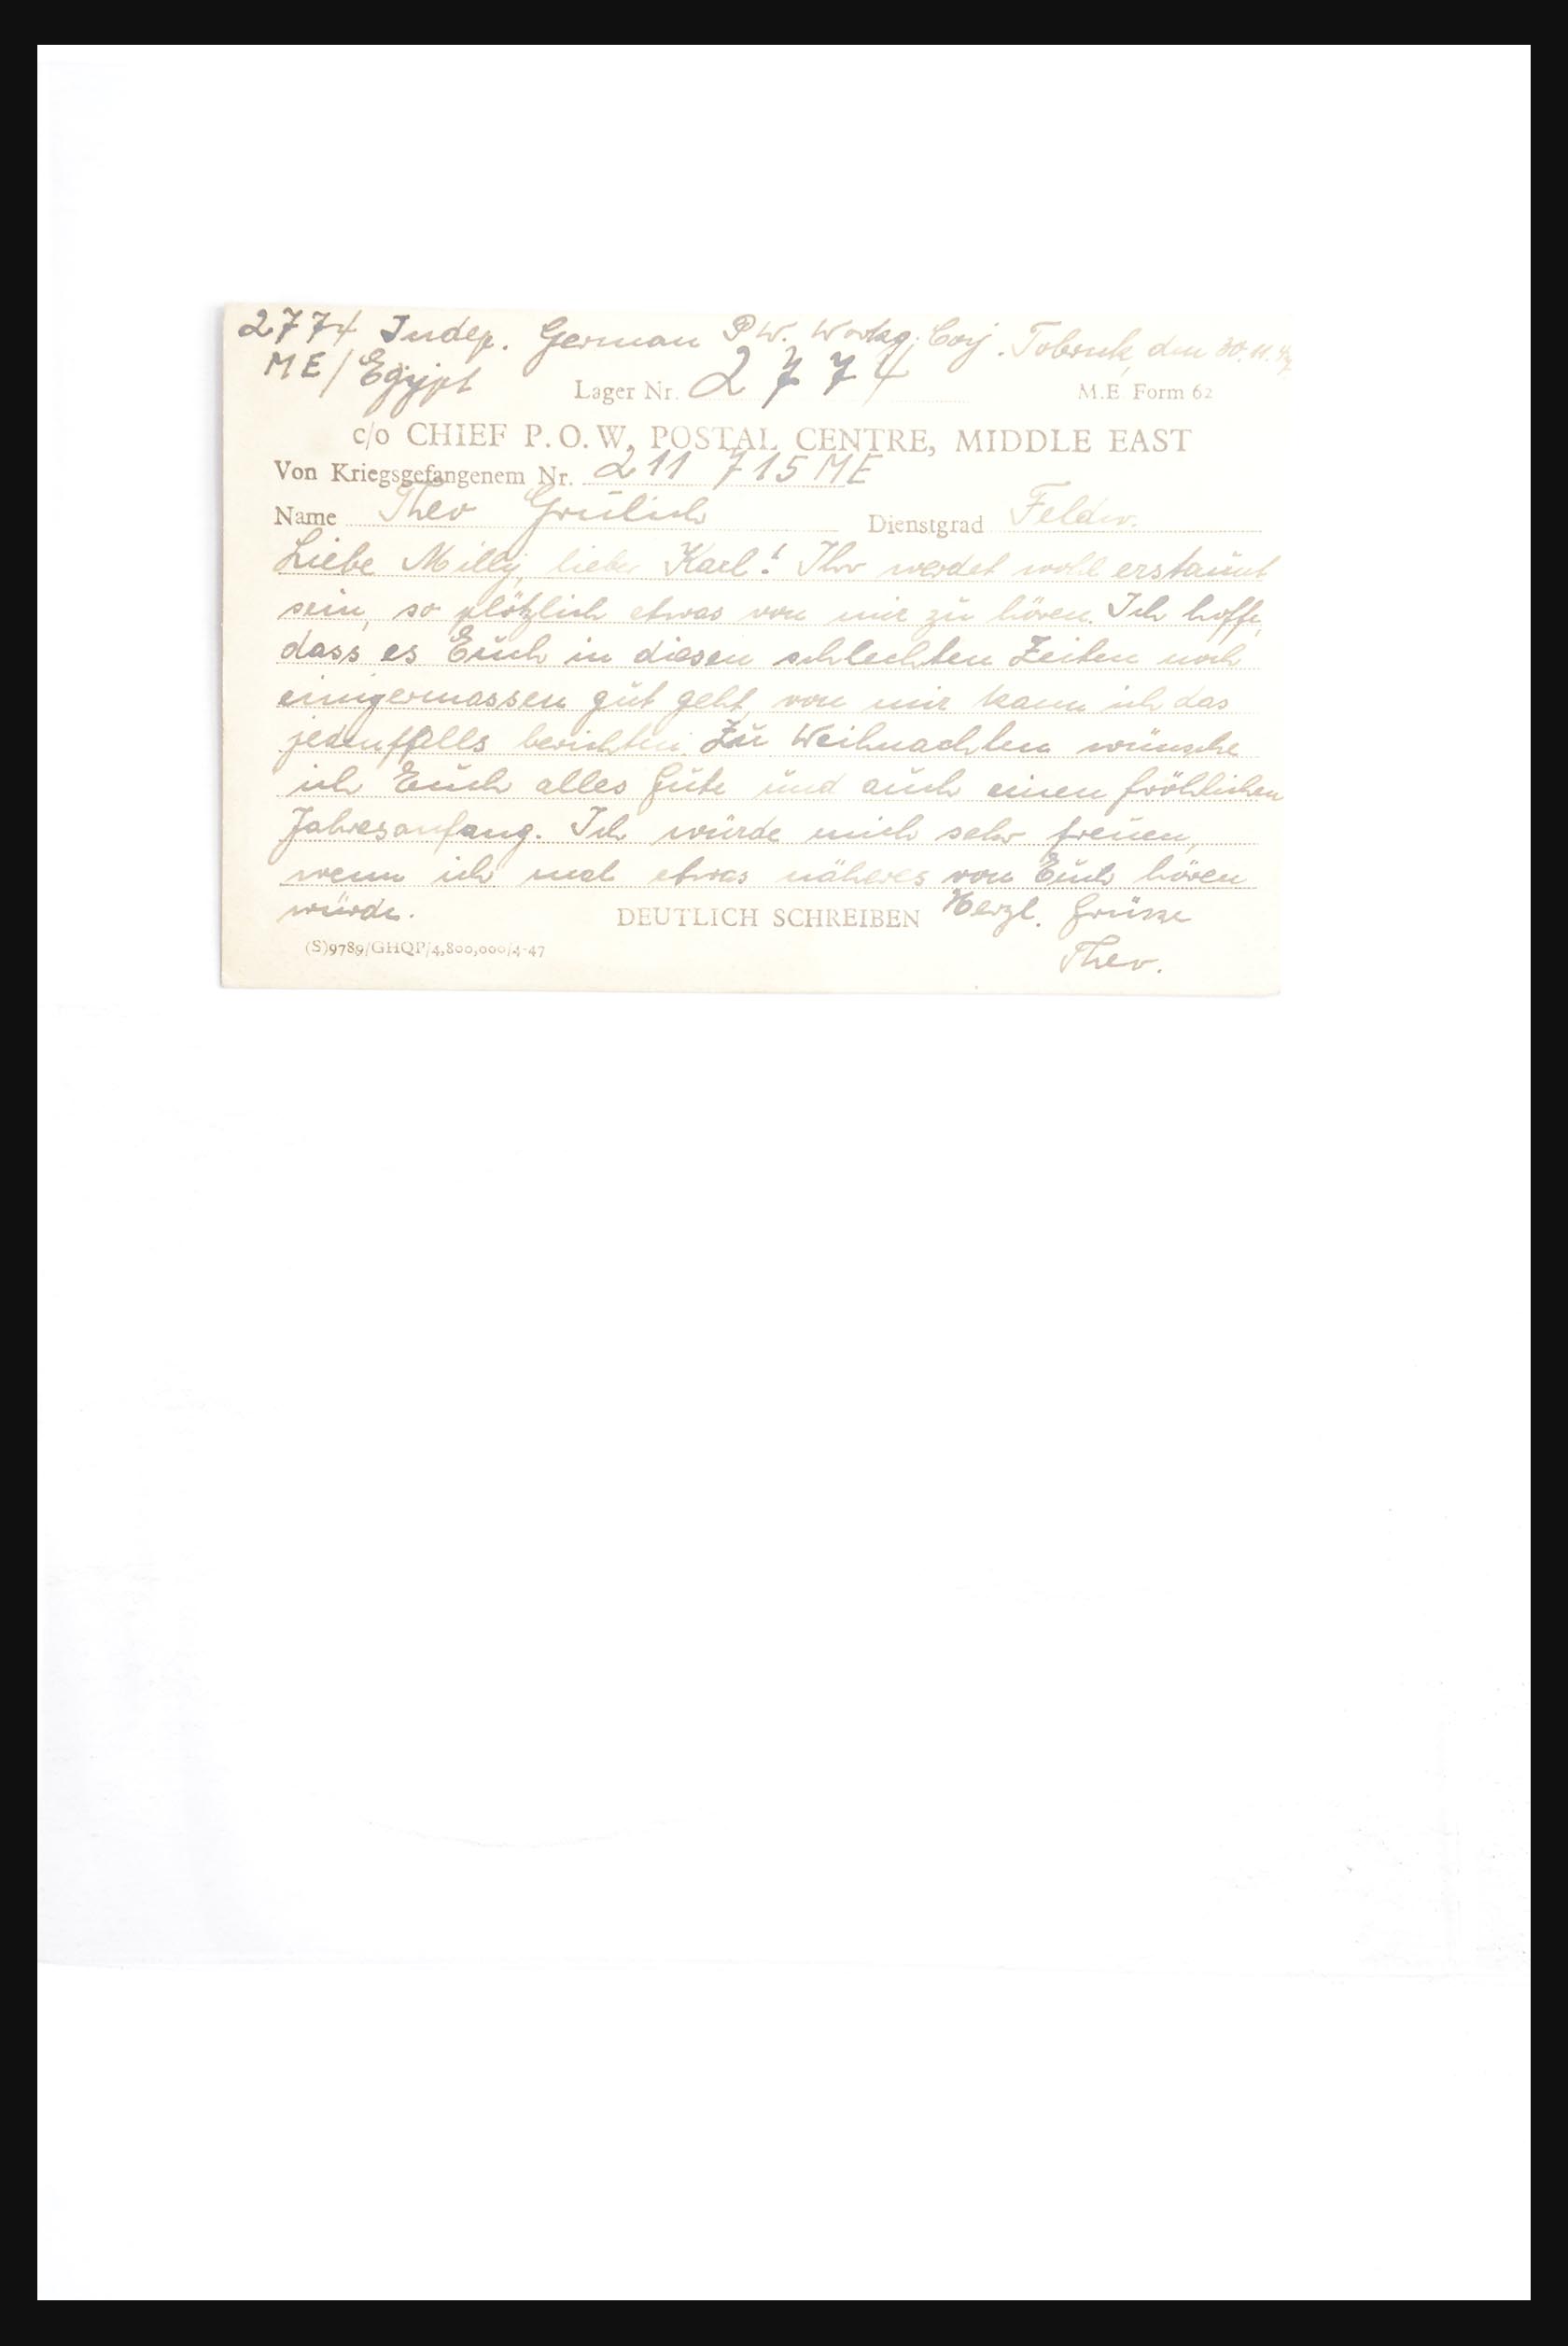 2774 Indep. German P.W. Workg. Coy. Tobruk, den 30.11.47
ME/Egypt Lager Nr. 2774 M.E. Form 62
c/o CHIEF P.O.W. POSTAL CENTRE, MIDDLE EAST
Von Kriegsgefangenem Nr. 211 715 ME
Name Theo Grülich Dienstgrad Feldw.
Liebe Milly, lieber Karl! Ihr werdet wohl erstaunt
sein, so plötzlich etwas von mir zu hören. Ich hoffe,
dass es Euch in diesen schlechten Zeiten noch
einigermassen gut geht, von mir kann ich das
jedenfalls berichten. Zu Weihnachten wünsche
ich Euch alles Gute und auch einen fröhlichen
Jahresanfang. Ich würde mich sehr freuen,
wenn ich mal etwas näheres von Euch hören
würde. DEUTLICH SCHREIBEN Herzl. Grüsse
(S)9789/GHQP/4,800,000/4-47
Theo.